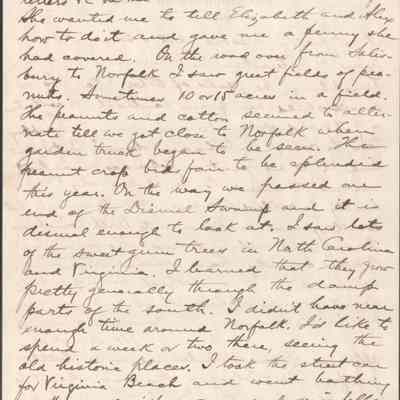 letters & on
She wanted me to tell Elizabeth and Alex
how to do it and gave me a penny she
had covered. On the road over from Salis-
bury to Norfolk I saw great fields of pea-
nuts. Sometimes 10 or 15 acres in a field.
The peanuts and cotton seemed to alter-
nate till we got close to Norfolk when
garden truck began to be seen. The
peanut crop bids fair to be splendid
this year. On the way we passed one
end of the Dismal Swamp and it is
dismal enough to look at. I saw lots
of the sweet gum trees in North Carolina
and Virginia. I learned that they grow
pretty generally through the damp
parts of the south. I didn't have near
enough time around Norfolk. I'd like to
spend a week or two there, seeing the
old historic places. I took the street car
for Virginia Beach and went bathing